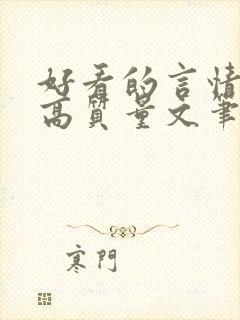 好看的言情
高质量文笔
寒門